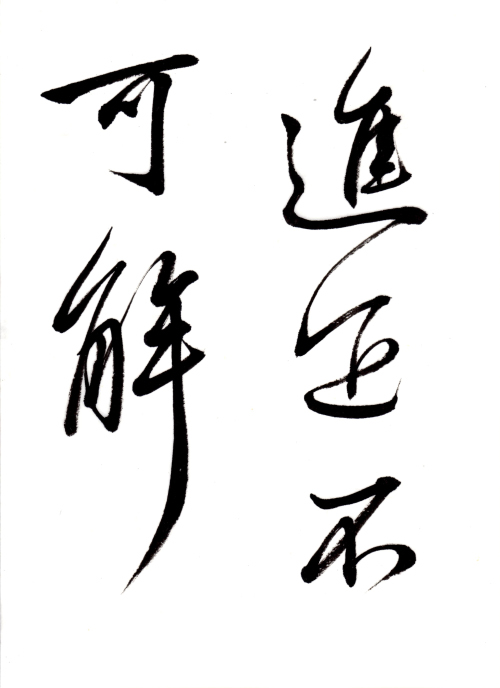 進不
可解